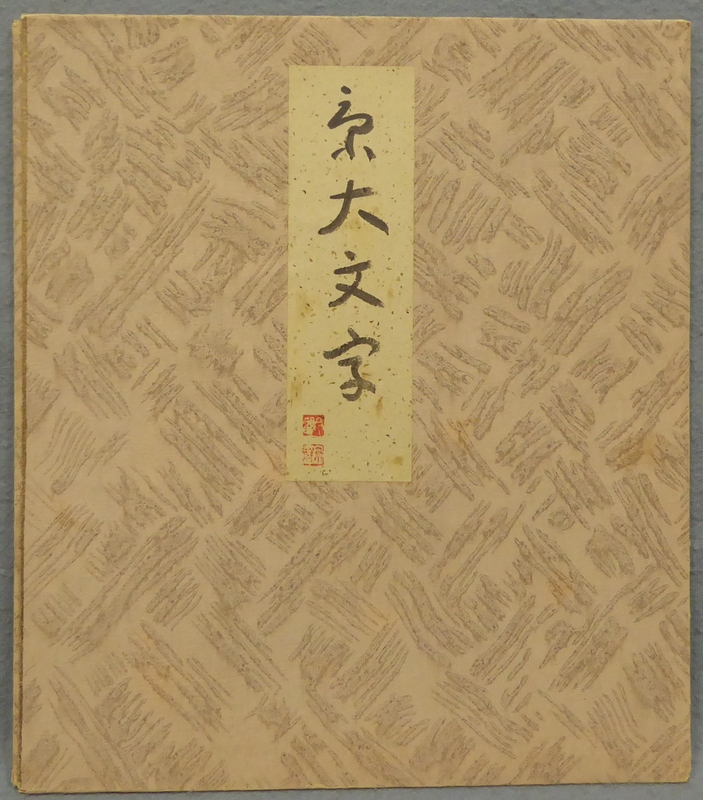 京大文字